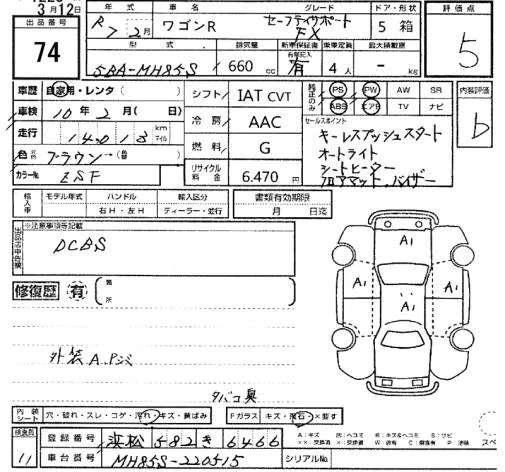 3月12日
出品番号
74
年式 車名 グレード ドア・形状 評価点
R 7 2月 ワゴンR セーフティサポート FX 5 箱 5
型式 排気量 新車保証書 有無記入 乗車定員 最大積載量
5BA-MH85S 660cc 有 4人 - kg
車歴 自家用・レンタ( )
車検 10年2月( 日)
走行 14013 km マイル
色 元色 ブラウン→(替 )
カラーNo ZSF
シフト IAT CVT
冷房 AAC
燃料 G
リサイクル料金 6.470円
純正のみ PS PW AW SR
ABS エアB TV ナビ
内装評価
b
セールスポイント
キーレスプッシュスタート
オートライト
シートヒーター
フロアマット、バイザー
輸入車 モデル年式 ハンドル 輸入区分
右H・左H ディーラー・並行
書類有効期限
月 日迄
出品店申告欄
※注意事項等記載
DCBS
修復歴 有 箇所
外装 A.Pシミ
タバコ臭
A1
A1
A1
A1
内装シート 穴・破れ・スレ・コゲ・汚れ・キズ・黄ばみ
Fガラス キズ・飛石・×要す
検査員
11
登録番号 浜松 582 き 6466
車台番号 MH85S-220515 シリアルNo
A:キズ
スペ